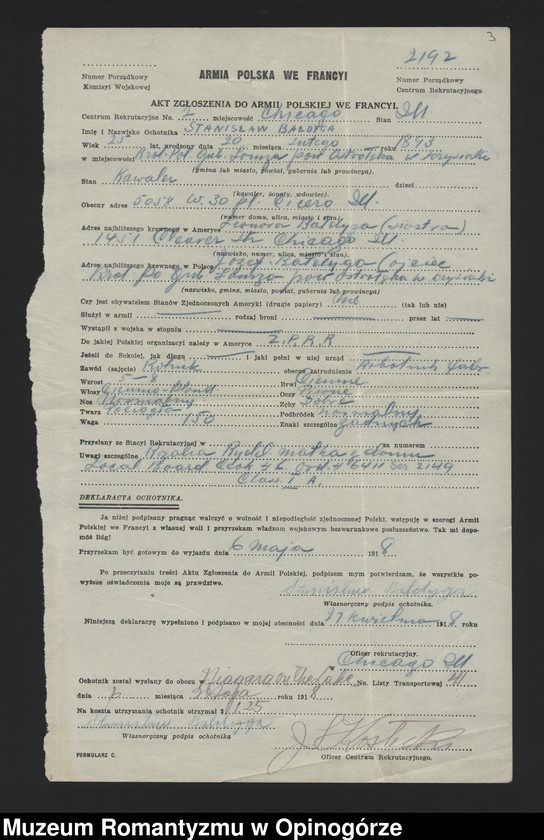 3
2192
Numer Porządkowy
Komisyi Wojskowej
ARMIA POLSKA WE FRANCYI
Numer Porządkowy
Centrum Rekrutacyjnego
AKT ZGŁOSZENIA DO ARMII POLSKIEJ WE FRANCYI.
Centrum Rekrutacyjne No. 2 miejscowość Chicago Stan Ill
Imię i Nazwisko Ochotnika STANISŁAW BAŁDYGA
Wiek 25 lat, urodzony dnia 20 miesiąca lutego roku 1893
w miejscowości Król. Pol. Gub. Łomża pow Ostrołęka
(gmina lub miasto, powiat, gubernia lub prowincya).
Stan Kawaler dzieci
(kawaler, żonaty, wdowiec).
Obecny adres 5058 W. 30 pl. Cicero Ill.
(numer domu, ulica, miasto i stan).
Adres najbliższego krewnego w Ameryce Leonora (siostra)
1451 Str Chicago Ill.
(nazwisko, numer, ulica, miasto i stan).
Adres najbliższego krewnego w Polsce Józef (ojciec
Król Po gub. Łomża pow Ostrołęka
(nazwisko, gmina, miasto, powiat, gubernia lub prowincya)
Czy jest obywatelem Stanów Zjednoczonych Ameryki (drugie papiery) Nie (tak lub nie)
Służył w armii rodzaj broni przez lat
Wystąpił z wojska w stopniu
Do jakiej Polskiej organizacyi należy w Ameryce Z.P.R.K
Jeżeli do Sokołej, jak długo i jaki pełni w niej urząd
Zawód (zajęcie) Rolnik obecne zatrudnienie Robotnik fabr.
Wzrost 5-6 Brwi Ciemne
Włosy Ciemno-blond Oczy Piwne
Nos Normalny Zęby Dobre
Twarz Pociągła Podbródek normalny
Waga 150 Znaki szczególne żadnych
Przysłany ze Stacyi Rekrutacyjnej w za numerem
Uwagi szczególne Rozalia Rydel matka z domu
Local Board Cicero # 6. Ord. # 6411 Ser 2149
Class I A.
DEKLARACYA OCHOTNIKA.
Ja niżej podpisany pragnąc walczyć o wolność i niepodległość zjednoczonej Polski, wstępuję w szeregi Armii
Polskiej we Francyi z własnej woli i przyrzekam władzom wojskowym bezwarunkowe posłuszeństwo. Tak mi dopo-
móż Bóg!
Przyrzekam być gotowym do wyjazdu dnia 6 maja 1918
Po przeczytaniu treści Aktu Zgłoszenia do Armii Polskiej, podpisem mym potwierdzam, że wszystkie po-
wyższe oświadczenia moje są prawdziwe.
Stanisław Bałdyga
Własnoręczny podpis ochotnika.
Niniejszą deklaracyę wypełniono i podpisano w mojej obecności dnia 17 kwietnia 1918 roku
Oficer rekrutacyjny.
Chicago Ill
Ochotnik został wysłany do obozu Niagara on the Lake No. Listy Transportowej 41
dnia 6 miesiąca Maja roku 1918
Na koszta utrzymania ochotnik otrzymał $ 1.25
Stanisław Bałdyga
Własnoręczny podpis ochotnika
Oficer Centrum Rekrutacyjnego.
FORMULARZ C.
Muzeum Romantyzmu w Opinogórze